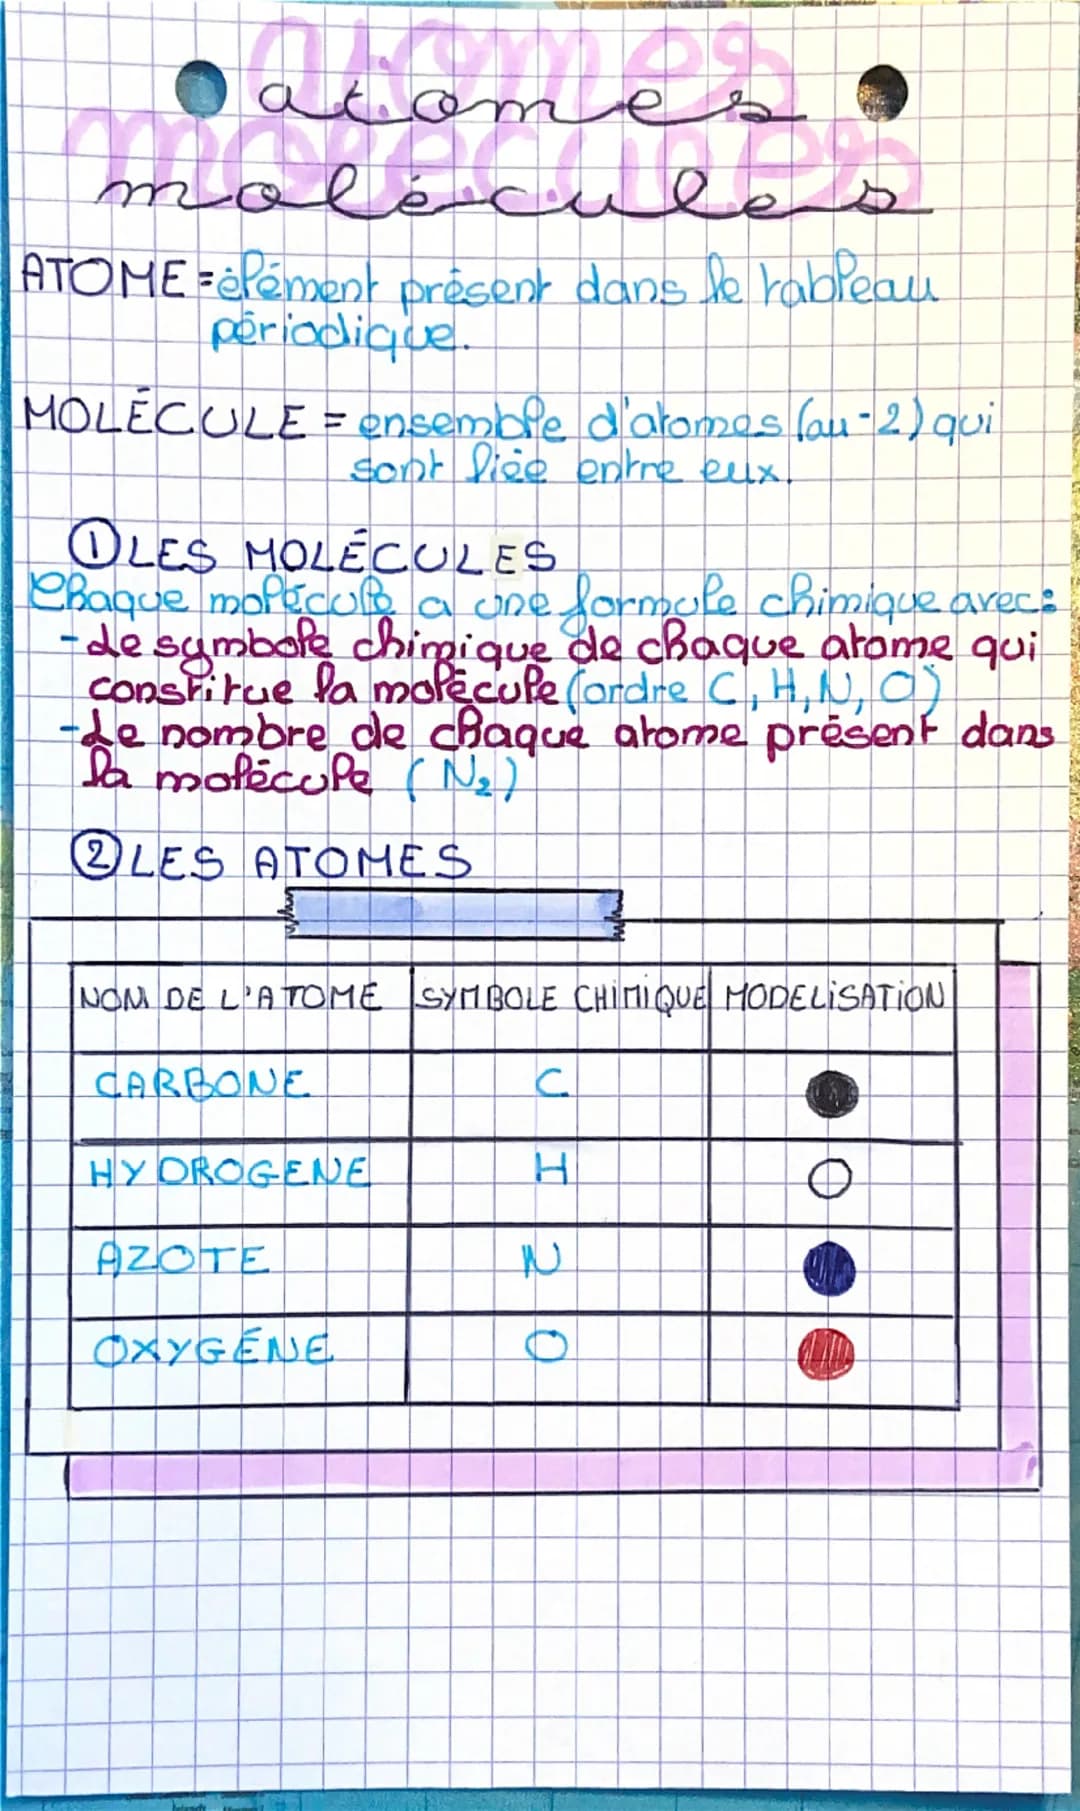 atomes
molécules
atomes
molécules
ATOME = élément présent dans le tableau
périodique.
MOLÉCULE = ensemble d'atomes (au - 2) qui
sont liée entre eux.
① LES MOLÉCULES
Chaque molécule a une formule chimique avec:
- Le symbole chimique de chaque atome qui
constitue la molécule (ordre C, H, N, O)
- Le nombre de chaque atome présent dans
la molécule (N₂)
② LES ATOMES
NOM DE L'ATOME SYMBOLE CHIMIQUE MODELISATION
CARBONE C
HYDROGENE H
AZOTE N
OXYGÉNE O